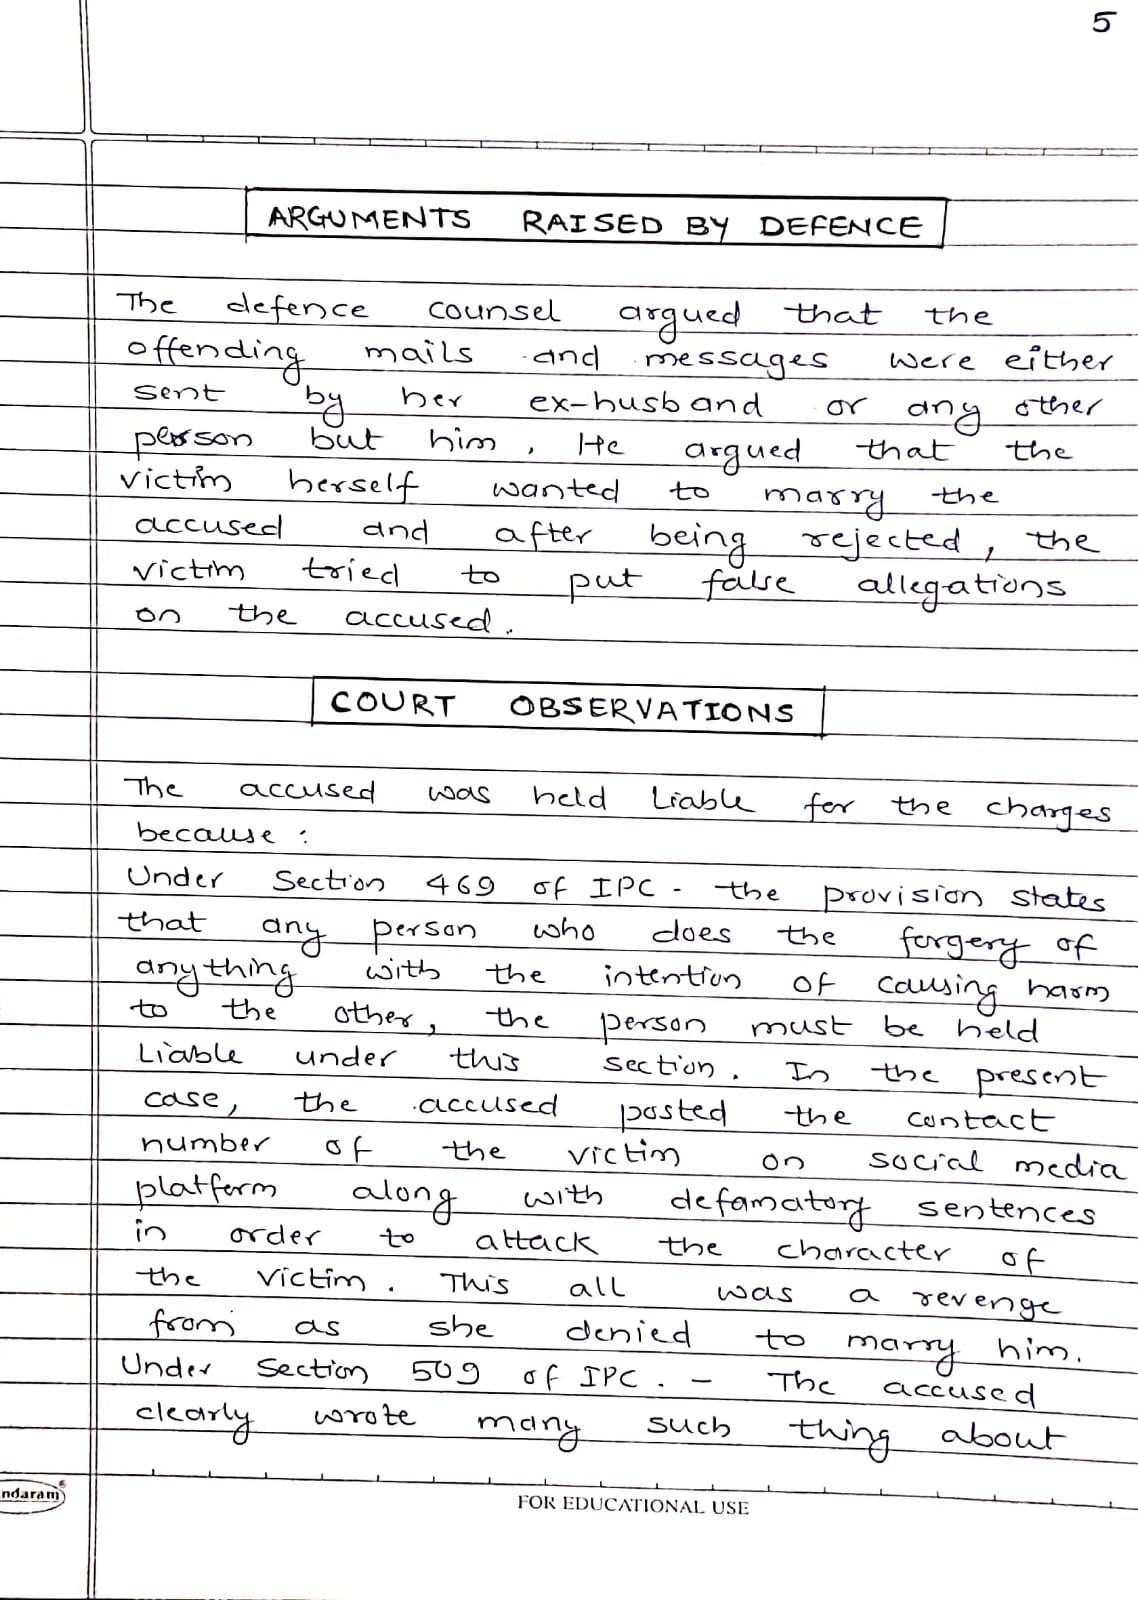 5
ARGUMENTS RAISED BY DEFENCE
The defence counsel argued that the
offending mails and messages were either
sent by her ex-husband or any other
person but him, He argued that the
victim herself wanted to marry the
accused and after being rejected, the
victim tried to put false allegations
on the accused.
COURT OBSERVATIONS
The accused was held Liable for the charges
because :
Under Section 469 of IPC - the provision states
that any person who does the forgery of
anything with the intention of causing harm
to the other, the person must be held
Liable under this section. In the present
case, the accused posted the contact
number of the victim on social media
platform along with defamatory sentences
in order to attack the character of
the victim. This all was a revenge
from as she denied to marry him.
Under Section 509 of IPC. - The accused
clearly wrote many such thing about
ndaram
FOR EDUCATIONAL USE